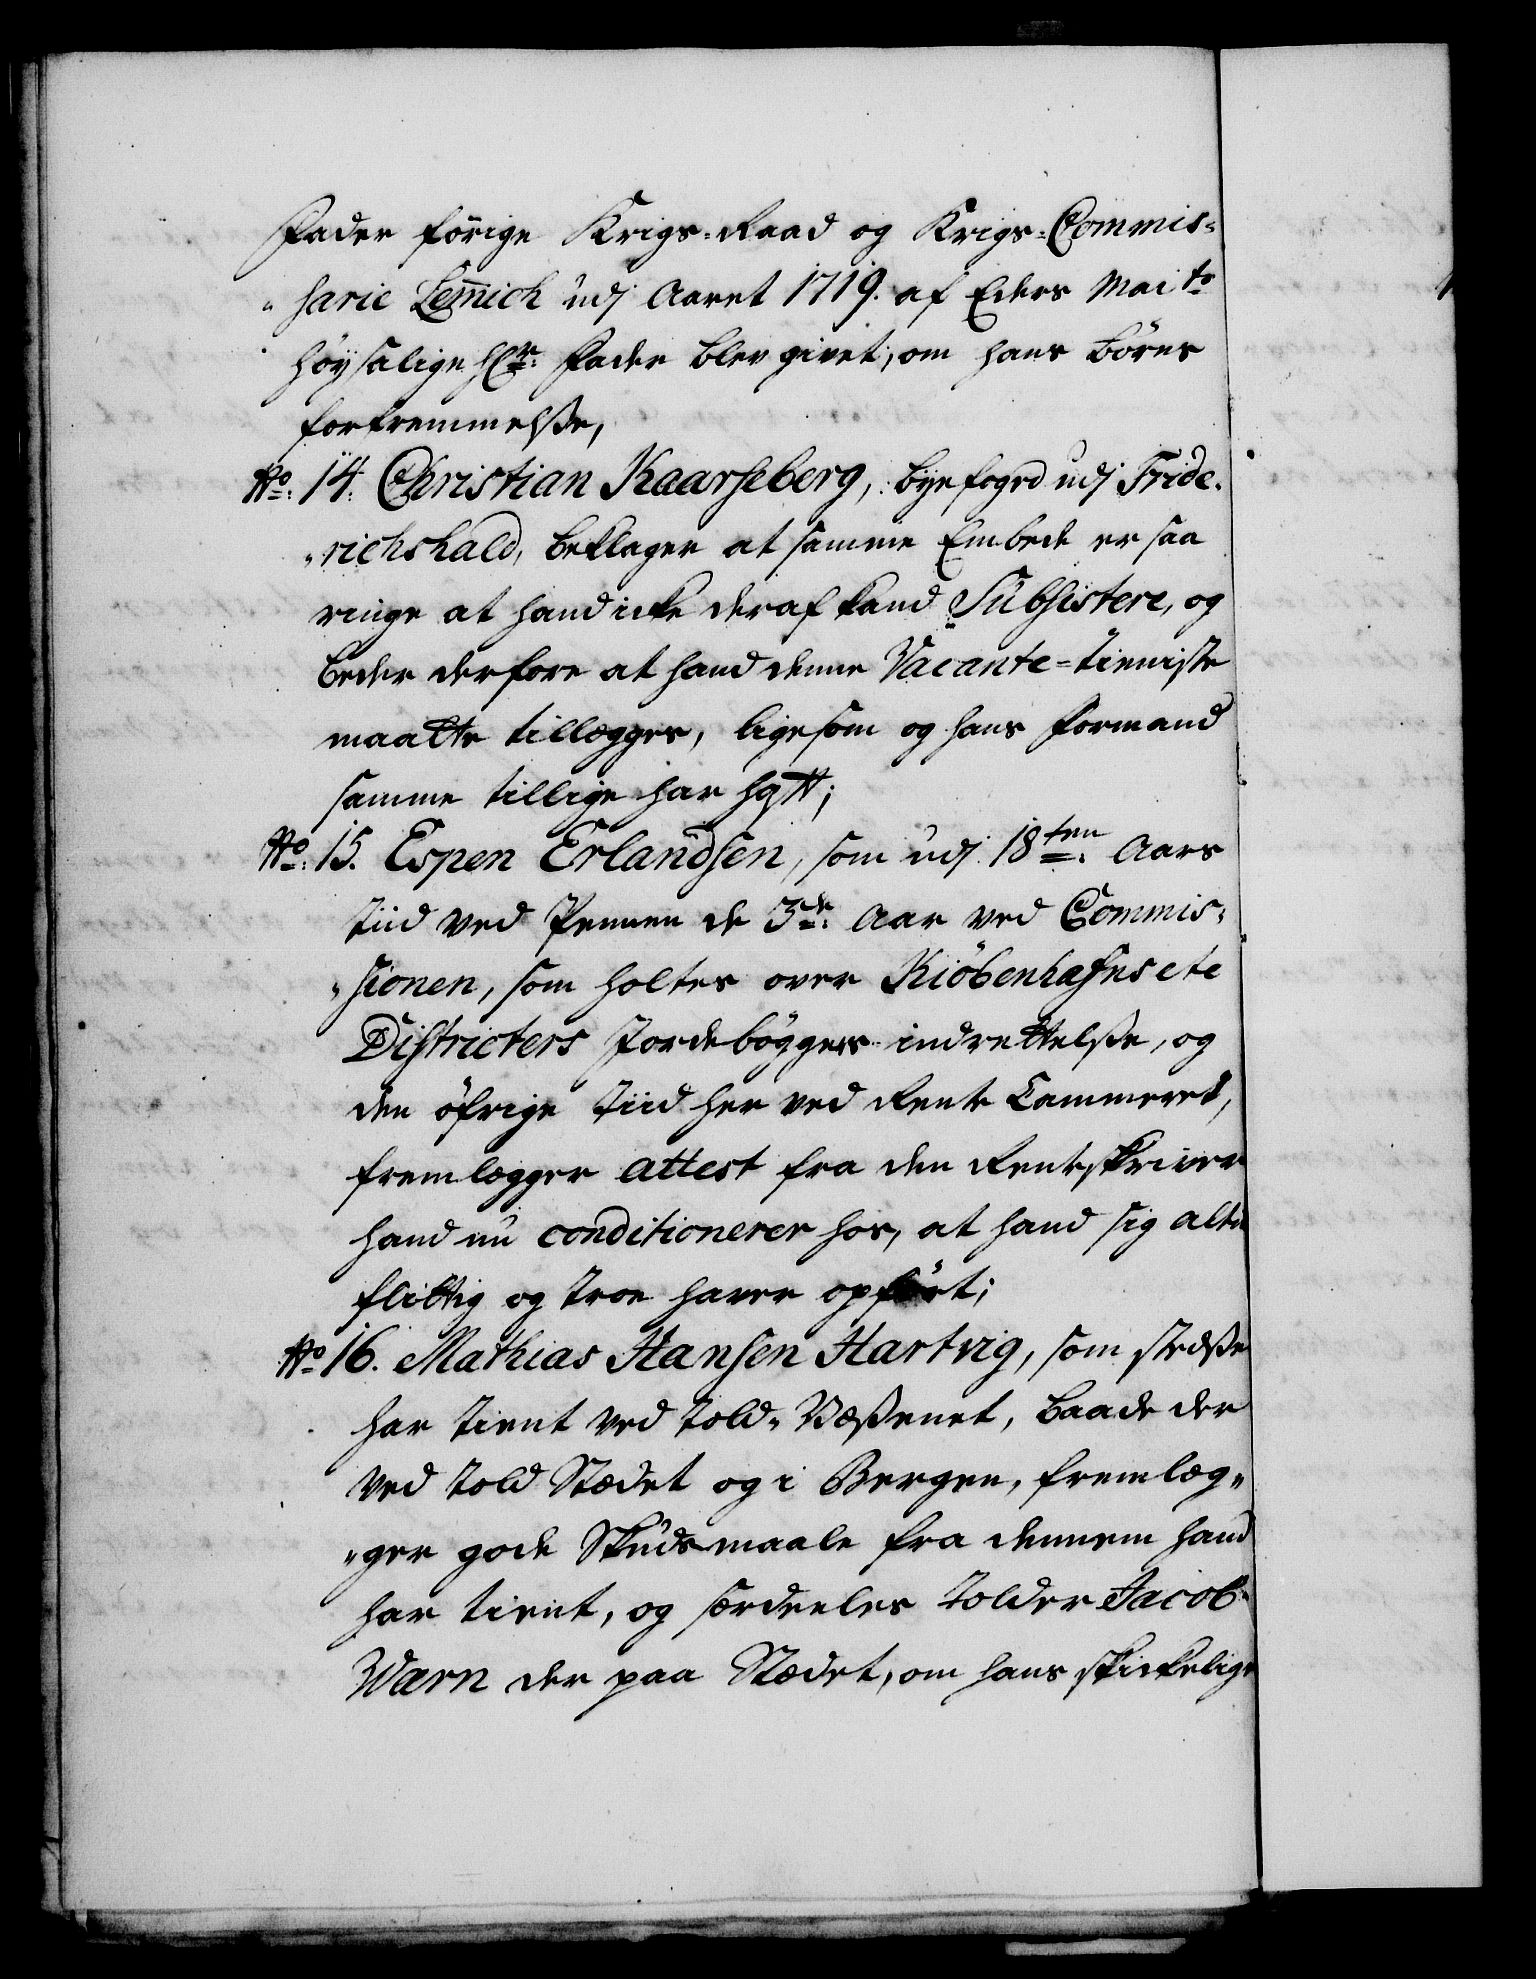 Fader forrige Krigs-Raad og Krigs-Commis-
"sarie Lemmich udj Aaret 1719. af Eders Maits
høysalige Hr: Fader blev givet, om hans Børns
forfremmelsse,
No: 14. Christian Kaarseberg, byefoged udj Fride-
"richshald, beklager at samme Embede er saa
ringe at hand icke deraf kand Subsistere, og
beder derfore at hand denne Vacante-tieniste
maatte tillegges, ligesom og hans formand
samme tillige har haft;
No: 15. Espen Erlandsen, som udj 18ten: Aars
tiid ved Pennen de 3de: Aar ved Commis-
"sionen, som holtes over Kiöbenhafns etc
Districters Jordebøggers indrettelsse, og
den øfrige tiid her ved Rente Cammeret,
fremlegger attest fra den Renteskriver
hand nu conditionerer hos, at hand sig altid
flittig og troe haver opført;
No 16. Mathias Hansen Hartvig, som stedsse
har tient ved Told-Væsenet, baade der
ved told Stædet og i Bergen, fremleg-
"ger gode Skudsmaale fra dennem hand
har tient, og særdeeles Tolder Jacob
Warn der paa Stædet, om hans skickelige